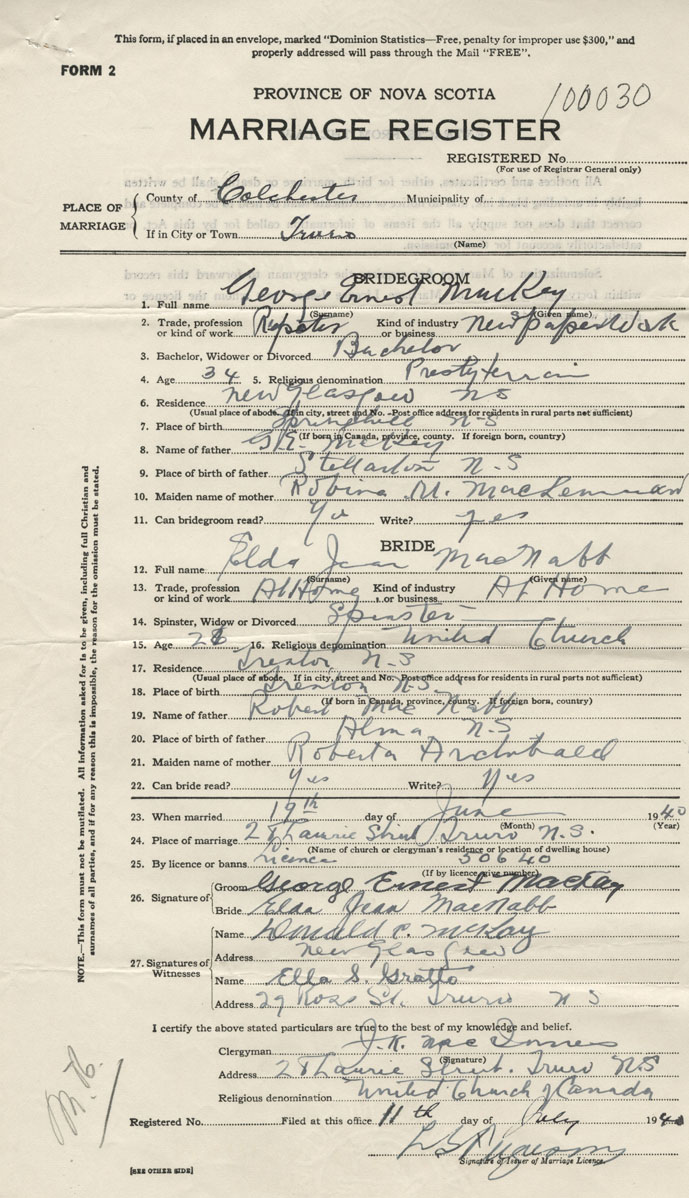 This form, if placed in an envelope, marked "Dominion Statistics—Free, penalty for improper use $300," and
properly addressed will pass through the Mail "FREE".
FORM 2
100030
PROVINCE OF NOVA SCOTIA
MARRIAGE REGISTER
REGISTERED No.
(For use of Registrar General only)
PLACE OF MARRIAGE
County of Colchester Municipality of
If in City or Town Truro
(Name)
BRIDEGROOM
1. Full name George Ernest MacKay
(Surname) (Given name)
2. Trade, profession or kind of work Reporter Kind of industry or business Newspaper Work
3. Bachelor, Widower or Divorced Bachelor
4. Age 34 5. Religious denomination Presbyterrain
6. Residence New Glasgow NS
(Usual place of abode. If in city, street and No. Post office address for residents in rural parts not sufficient)
7. Place of birth Springhill N-S
(If born in Canada, province, county. If foreign born, country)
8. Name of father McKay
9. Place of birth of father Stellarton N.S
10. Maiden name of mother Robina M. MacLennan
11. Can bridegroom read? Yes Write? yes
BRIDE
12. Full name Elda Jean MacNabb
(Surname) (Given name)
13. Trade, profession or kind of work At Home Kind of industry or business At Home
14. Spinster, Widow or Divorced Spinster
15. Age 16. Religious denomination United Church
17. Residence Trenton N-S
(Usual place of abode. If in city, street and No. Post office address for residents in rural parts not sufficient)
18. Place of birth Trenton N-S
(If born in Canada, province, county. If foreign born, country)
19. Name of father Robert Mac Nabb
20. Place of birth of father Alma N-S
21. Maiden name of mother Roberta Archibald
22. Can bride read? Yes Write? Yes
23. When married 19th day of June 1940
(Month) (Year)
24. Place of marriage Laurie Street Truro N.S.
(Name of church or clergyman's residence or location of dwelling house)
25. By licence or banns licence 50640
(If by licence give number)
26. Signature of
Groom George Ernest MacKay
Bride Elda Jean MacNabb
27. Signatures of Witnesses
Name Donald C. McKay
Address New Glasgow
Name Ella S. Gratto
Address 29 Ross St. Truro N S
I certify the above stated particulars are true to the best of my knowledge and belief.
Clergyman J.K. MacInnes
(Signature)
Address Laurie Street. Truro N.S
Religious denomination United Church of Canada
Registered No. Filed at this office 11th day of July 194
Signature of Issuer of Marriage Licence
[SEE OTHER SIDE]
NOTE.—This form must not be mutilated. All information asked for is to be given, including full Christian and
surnames of all parties, and if for any reason this is impossible, the reason for the omission must be stated.